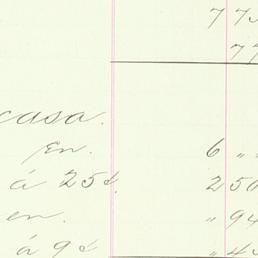 773
77
casa.
en. 6 "
á 25¢. 250
en. " 94
á 9¢ " 45